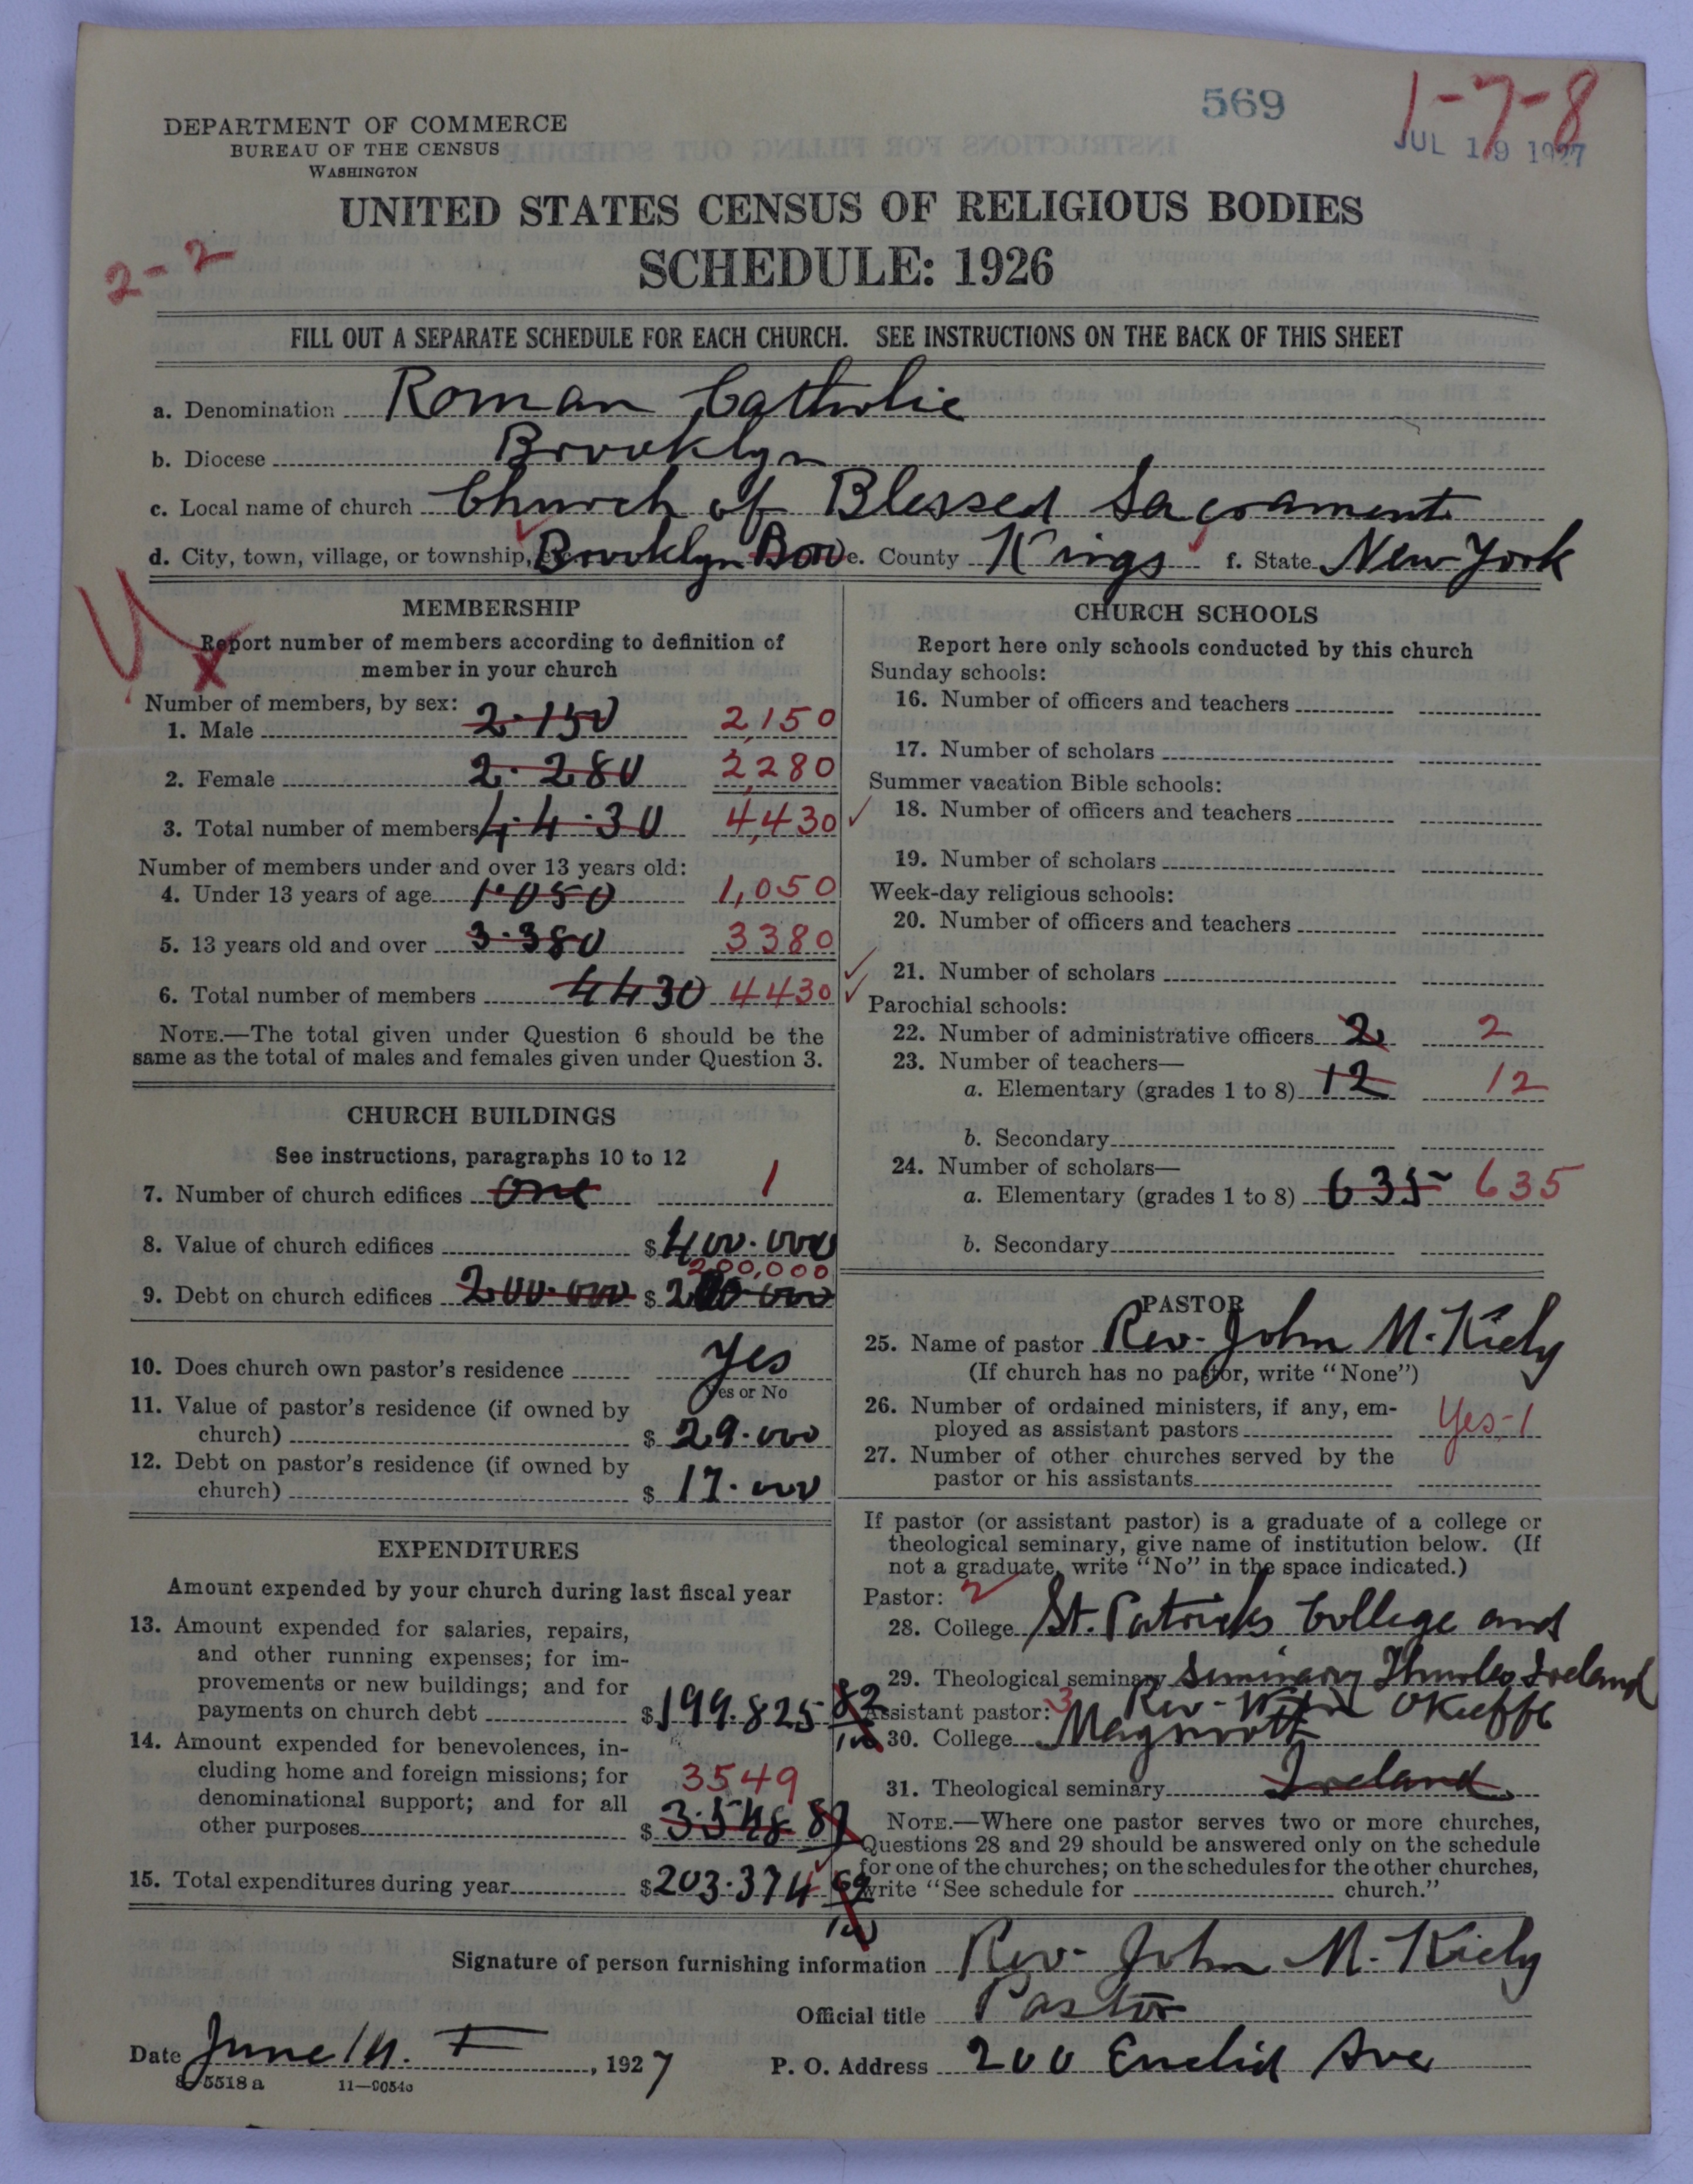 569
1-7-8
JUL 19 1927
DEPARTMENT OF COMMERCE
BUREAU OF THE CENSUS
WASHINGTON
UNITED STATES CENSUS OF RELIGIOUS BODIES
2-2
SCHEDULE: 1926
FILL OUT A SEPARATE SCHEDULE FOR EACH CHURCH. SEE INSTRUCTIONS ON THE BACK OF THIS SHEET
a. Denomination Roman Catholic
b. Diocese Brooklyn
c. Local name of church Church of Blessed Sacrament
d. City, town, village, or township, Brooklyn Boro e. County Kings f. State New York
MEMBERSHIP
Report number of members according to definition of
member in your church
Number of members, by sex:
1. Male 2.150 2,150
2. Female 2.280 2,280
3. Total number of members 4.4.30 4,430
Number of members under and over 13 years old:
4. Under 13 years of age 1.050 1,050
5. 13 years old and over 3.380 3380
6. Total number of members 4430 4430
NOTE.—The total given under Question 6 should be the
same as the total of males and females given under Question 3.
CHURCH BUILDINGS
See instructions, paragraphs 10 to 12
7. Number of church edifices one 1
8. Value of church edifices $400.000
200,000
9. Debt on church edifices 200.000 $
10. Does church own pastor's residence Yes
Yes or No
11. Value of pastor's residence (if owned by
church) $ 29.000
12. Debt on pastor's residence (if owned by
church) $ 17.000
EXPENDITURES
Amount expended by your church during last fiscal year
13. Amount expended for salaries, repairs,
and other running expenses; for im-
provements or new buildings; and for
payments on church debt $199.825 82/100
14. Amount expended for benevolences, in-
cluding home and foreign missions; for 3549
denominational support; and for all
other purposes $ 3.548 87
15. Total expenditures during year $203.374 69/100
CHURCH SCHOOLS
Report here only schools conducted by this church
Sunday schools:
16. Number of officers and teachers
17. Number of scholars
Summer vacation Bible schools:
18. Number of officers and teachers
19. Number of scholars
Week-day religious schools:
20. Number of officers and teachers
21. Number of scholars
Parochial schools:
22. Number of administrative officers 2 2
23. Number of teachers—
a. Elementary (grades 1 to 8) 12 12
b. Secondary
24. Number of scholars—
a. Elementary (grades 1 to 8) 635 635
b. Secondary
PASTOR
25. Name of pastor Rev. John M. Kiely
(If church has no pastor, write "None")
26. Number of ordained ministers, if any, em-
ployed as assistant pastors Yes-1
27. Number of other churches served by the
pastor or his assistants
If pastor (or assistant pastor) is a graduate of a college or
theological seminary, give name of institution below. (If
not a graduate, write "No" in the space indicated.)
Pastor: 2
28. College St. Patricks College and
29. Theological seminary Seminary Thurles, Ireland
Assistant pastor: 3 Rev. Wm OKeeffe
30. College Maynooth
31. Theological seminary Ireland
NOTE.—Where one pastor serves two or more churches,
Questions 28 and 29 should be answered only on the schedule
for one of the churches; on the schedules for the other churches,
write "See schedule for church."
Signature of person furnishing information Rev. John M. Kiely
Official title Pastor
Date June , 1927 P. O. Address 200 Euclid Ave
8-5518 a 11-9054a